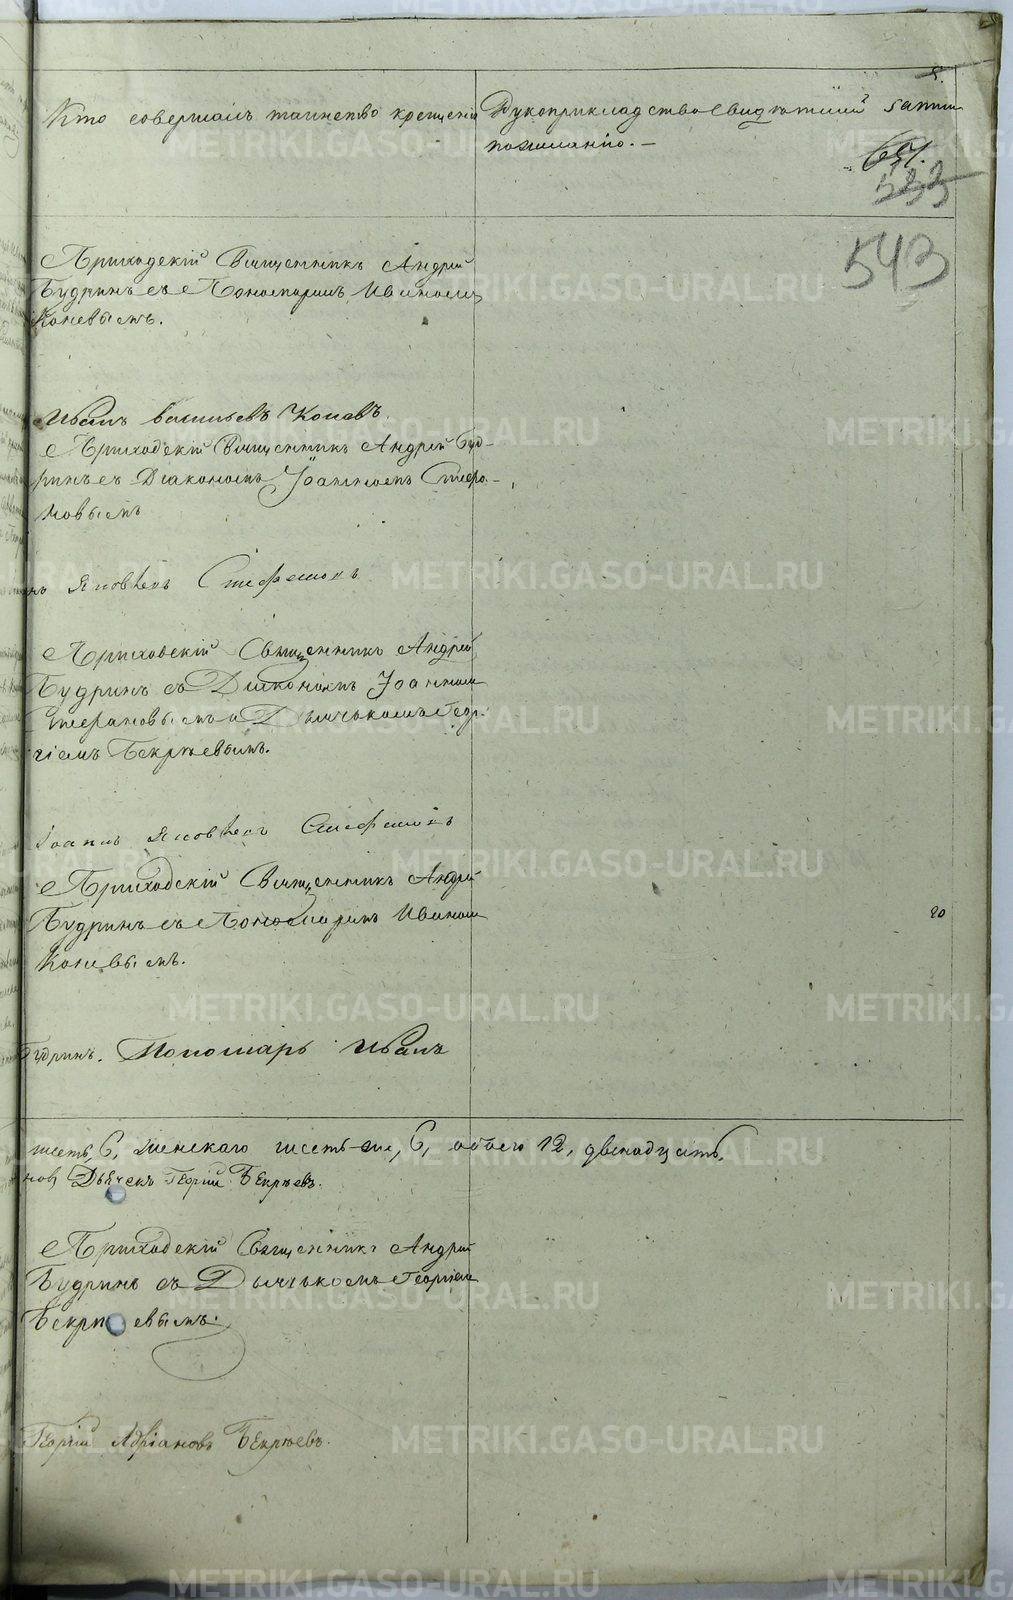 Кто совершалъ таинство крещенія
Рукоприкладство свидѣтелей записи
по желанію. —
543
Приходскій Священникъ Андрей
Будринъ съ Пономаремъ Иваномъ
Коневымъ.
Иванъ Васильевъ Коневъ
Приходскій Священникъ Андрей Буд-
ринъ съ Діакономъ Іоанномъ Стефа-
новымъ
Яковлевъ Стефановъ
Приходскій Священникъ Андрей
Будринъ съ Діакономъ Іоанномъ
Стефановымъ и Дьячькомъ Геор-
гіемъ Бекрѣевымъ.
Іоаннъ Яковлевъ Стефановъ
Приходскій Священникъ Андрей
Будринъ съ Пономаремъ Иваномъ
20
Коневымъ.
Будринъ. Пономарь Иванъ
шесть, 6, женскаго шесть 6, обоего 12, двенадцать.
новъ Дьячекъ Георгій Бекрѣевъ.
Приходскій Священникъ Андрей
Будринъ съ Дьячькомъ Георгіемъ
Бекрѣевымъ.
Георгій Адріановъ Бекрѣевъ.
METRIKI.GASO-URAL.RU